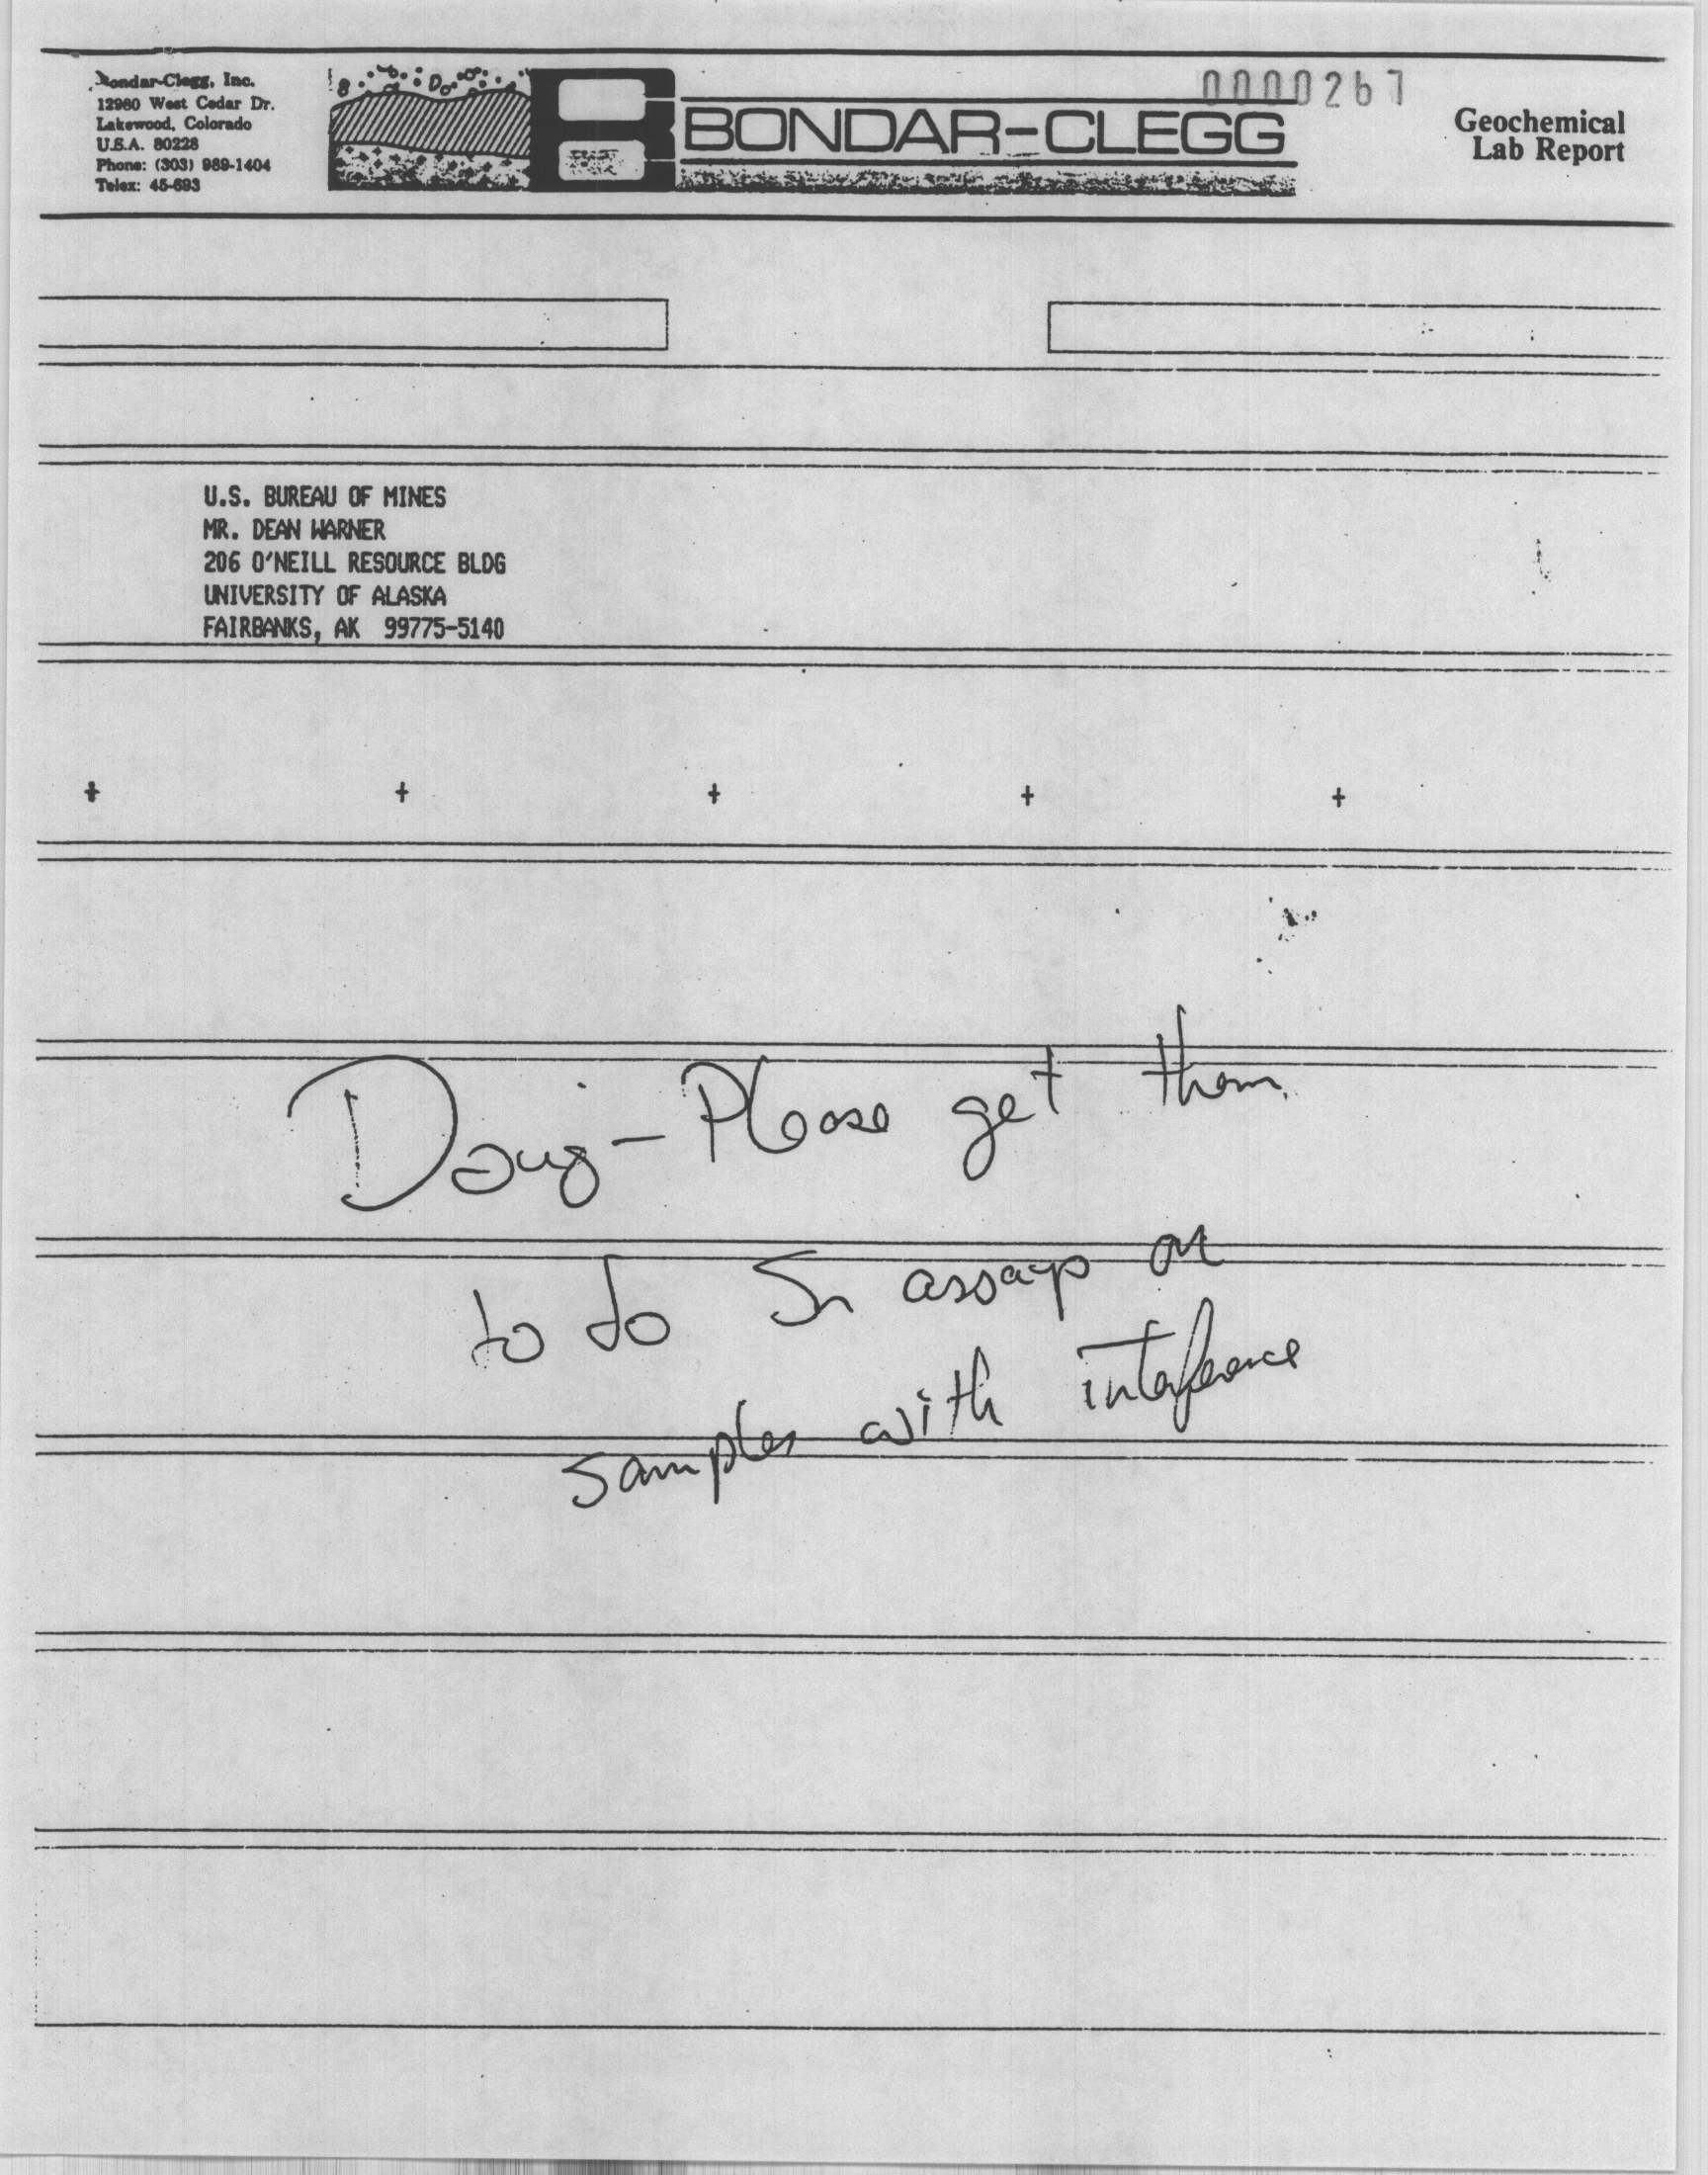 Bondar-Clegg, Inc.
12980 West Cedar Dr.
Lakewood, Colorado
U.S.A. 80228
Phone: (303) 989-1404
Telex: 45-693
BONDAR-CLEGG
0000267
Geochemical
Lab Report
U.S. BUREAU OF MINES
MR. DEAN WARNER
206 O'NEILL RESOURCE BLDG
UNIVERSITY OF ALASKA
FAIRBANKS, AK 99775-5140
Doug - Please get them
to do Sn assays on
samples with interference